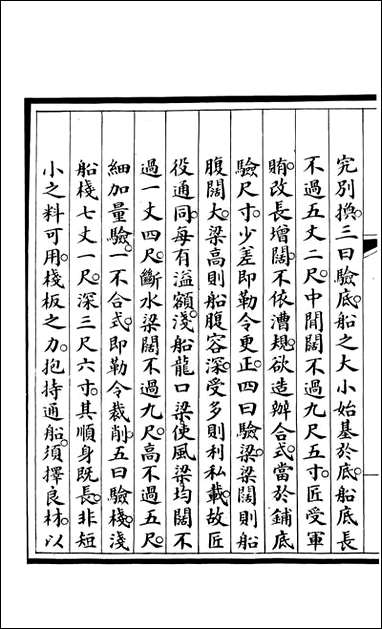 究別換三曰驗底船之大小始基於底船底長
不過五丈二尺中間闊不過九尺五寸匠受軍
賄改長增闊不依漕規欲造辦合式當於鋪底
驗尺寸少差即勒令更正四曰驗梁梁闊則船
腹闊大梁高則船腹容深受多則利私載故匠
役通同每有溢額淺船龍口梁使風梁均闊不
過一丈四尺斷水梁闊不過九尺高不過五尺
細加量驗一不合式即勒令裁削五曰驗棧淺
船棧七丈一尺深三尺六寸其順身既長非短
小之料可用棧板之力抱持通船須擇良材以